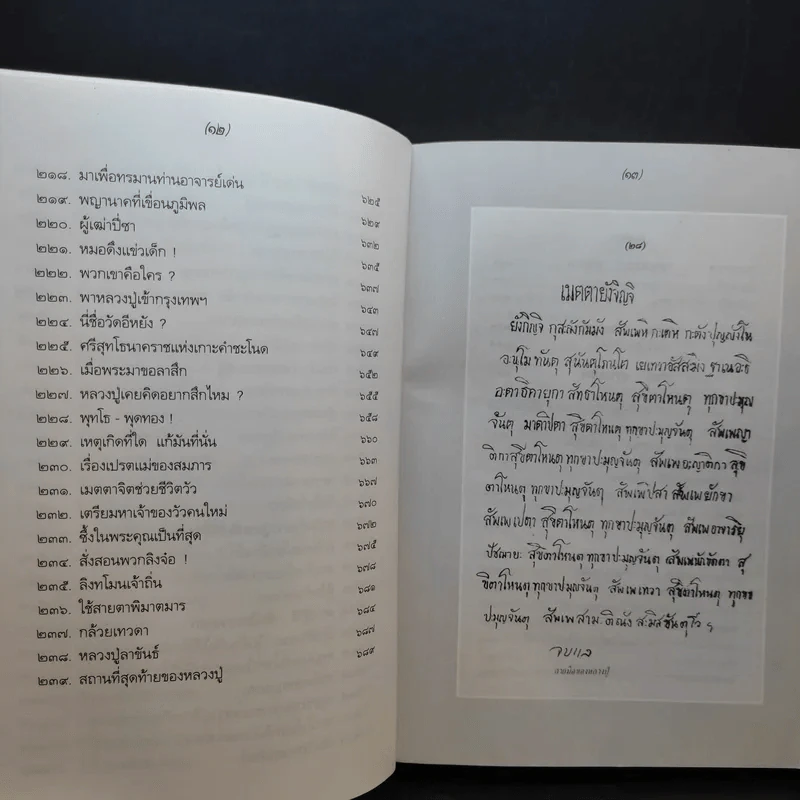 (๑๒)
๒๑๘. มาเพื่อทรมานท่านอาจารย์เด่น ๖๒๕
๒๑๙. พญานาคที่เขื่อนภูมิพล ๖๒๙
๒๒๐. ผู้เฒ่าปี่ซา ๖๓๒
๒๒๑. หมอดึงแข่วเด็ก ! ๖๓๕
๒๒๒. พวกเขาคือใคร ? ๖๓๗
๒๒๓. พาหลวงปู่เข้ากรุงเทพฯ ๖๔๓
๒๒๔. นี่ชื่อวัดอีหยัง ? ๖๔๗
๒๒๕. ศรีสุทโธนาคราชแห่งเกาะคำชะโนด ๖๔๙
๒๒๖. เมื่อพระมาขอลาสึก ๖๕๒
๒๒๗. หลวงปู่เคยคิดอยากสึกไหม ? ๖๕๕
๒๒๘. พุทโธ - พุดทอง ! ๖๕๘
๒๒๙. เหตุเกิดที่ใด แก้มันที่นั่น ๖๖๐
๒๓๐. เรื่องเปรตแม่ของสมภาร ๖๖๓
๒๓๑. เมตตาจิตช่วยชีวิตวัว ๖๖๗
๒๓๒. เตรียมหาเจ้าของวัวคนใหม่ ๖๗๐
๒๓๓. ซึ้งในพระคุณเป็นที่สุด ๖๗๒
๒๓๔. สั่งสอนพวกลิงจ๋อ ! ๖๗๕
๒๓๕. ลิงทโมนเจ้าถิ่น ๖๗๘
๒๓๖. ใช้สายตาพิฆาตมาร ๖๘๑
๒๓๗. กล้วยเทวดา ๖๘๔
๒๓๘. หลวงปู่ลาขันธ์ ๖๘๗
๒๓๙. สถานที่สุดท้ายของหลวงปู่ ๖๘๙
(๑๓)
(๒๘)
เมตตายังจิญจิ
ยังกิญจิ กุสะลังกัมมัง สัพเพหิ กะเตหิ กะตังปุญญังโน
อะนุโมทันตุ สุนันตุโภนโต เยเทวา
อะตาทีฆายุกา สัทธาโหนตุ สุขิตาโหนตุ ทุกขาปะมุญ
จันตุ มาตาปิตา สุขิตาโหนตุ ทุกขาปะมุญจันตุ สัพเพญา
ติกาสุขิตาโหนตุ ทุกขาปะมุญจันตุ สัพเพอะญาติกา สุขิ
ตาโหนตุ ทุกขาปะมุญจันตุ สัพเพปิสา สัพเพยักขา
สัพเพเปตา สุขิตาโหนตุ ทุกขาปะมุญจันตุ สัพเพอาจาริยุ
ปัชฌายะ สุขิตาโหนตุ ทุกขาปะมุญจันตุ สัพเพนักขัตตา สุ
ขิตาโหนตุ ทุกขาปะมุญจันตุ สัพเพเทวา สุขิตาโหนตุ ทุกขา
ปะมุญจันตุ
จบแล
ลายมือของหลวงปู่